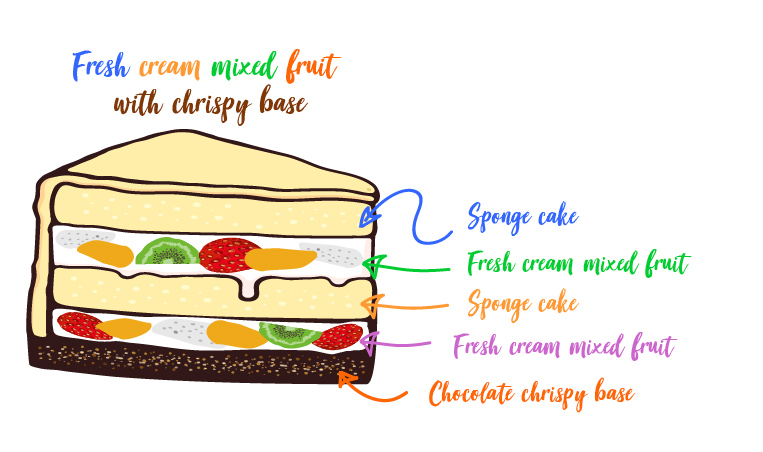 Fresh cream mixed fruit
with chrispy base
Sponge cake
Fresh cream mixed fruit
Sponge cake
Fresh cream mixed fruit
Chocolate chrispy base